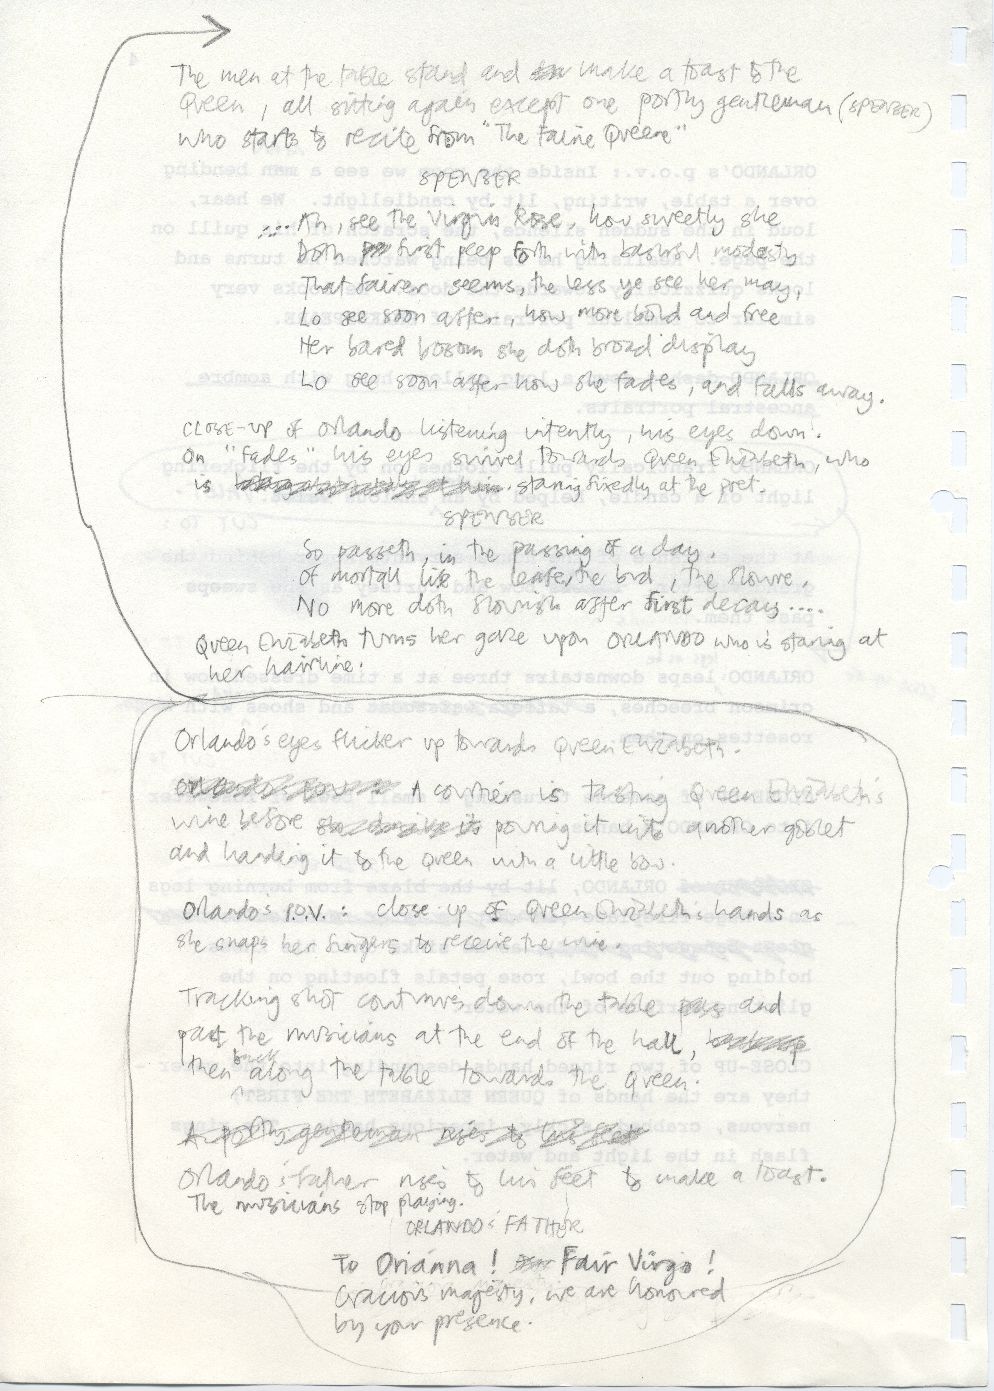 The men at the table stand and make a toast to the
Queen, all sitting again except one portly gentleman (SPENSER)
who starts to recite from "The Faerie Queene"
SPENSER
....Ah, see the Virgin Rose, how sweetly she
Doth first peep forth with bashful modesty
That fairer seems, the less ye see her may,
Lo see soon after, how more bold and free
Her bared bosom she doth broad display
Lo see soon after how she fades, and falls away.
CLOSE-UP of Orlando listening intently, his eyes down.
On "fades" his eyes swivel towards Queen Elizabeth, who
is staring fixedly at the poet.
SPENSER
So passeth, in the passing of a day.
Of mortall life the leafe, the bud, the flowre.
No more doth flourish after first decay....
Queen Elizabeth turns her gaze upon ORLANDO who is staring at
her hairline.
Orlando's eyes flicker up towards Queen Elizabeth.
A courtier is tasting Queen Elizabeth's
wine before pouring it into another goblet
and handing it to the Queen with a little bow.
Orlando's P.O.V.: close-up of Queen Elizabeth's hands as
she snaps her fingers to receive the wine.
Tracking shot continues down the table and
past the musicians at the end of the hall,
then back along the table towards the Queen.
A portly gentleman rises to his feet
Orlando's father rises to his feet to make a toast.
The musicians stop playing.
ORLANDO'S FATHER
To Orianna! Fair Virgo!
Gracious majesty, we are honoured
by your presence.